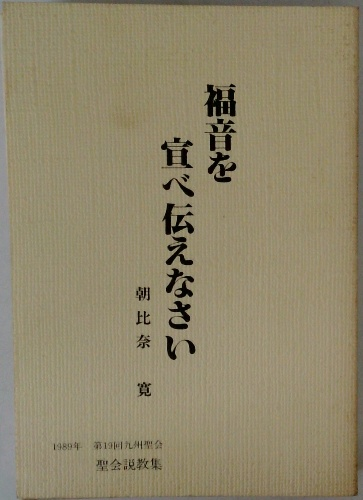 福音を
宣べ伝えなさい
朝比奈 寛
1989年 第19回九州聖会
聖会説教集